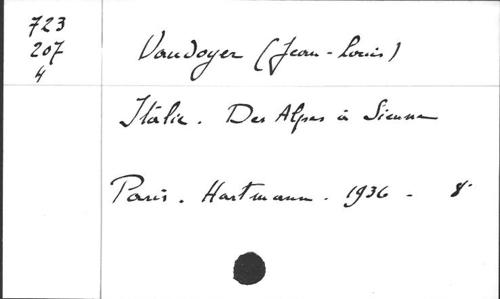 723
207
4
Vaudoyer (Jean-Louis)
Italie. Des Alpes à Sienne
Paris. Hartmann. 1936 - 8°